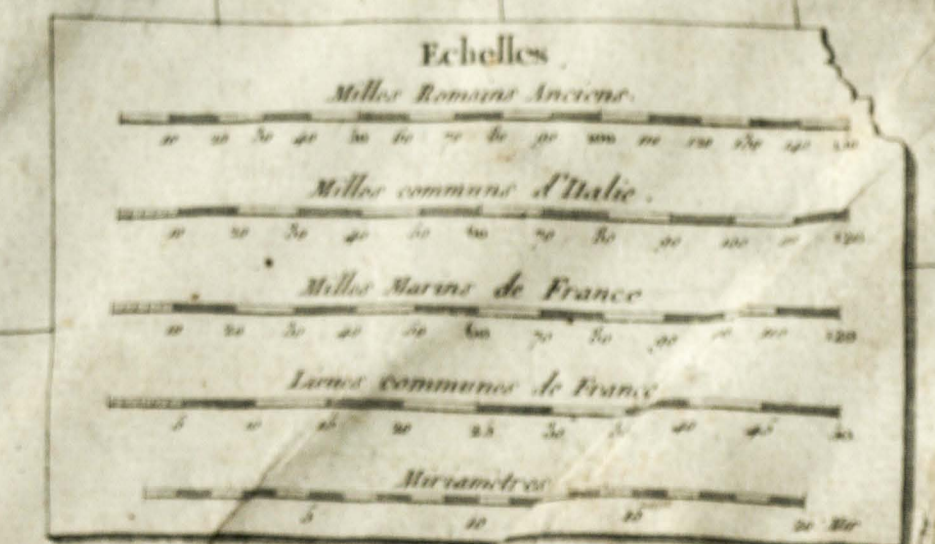 Echelles
Milles Romains Anciens.
10 20 30 40 50 60 70 80 90 100 110 120 130 140 150
Milles communs d'Italie.
10 20 30 40 50 60 70 80 90 100 120
Milles Marins de France
10 20 30 40 50 60 70 80 90 110 120
Lieues communes de France
5 10 15 20 25 30 35 40 45 50
Miriametres
5 10 15 20 Mir